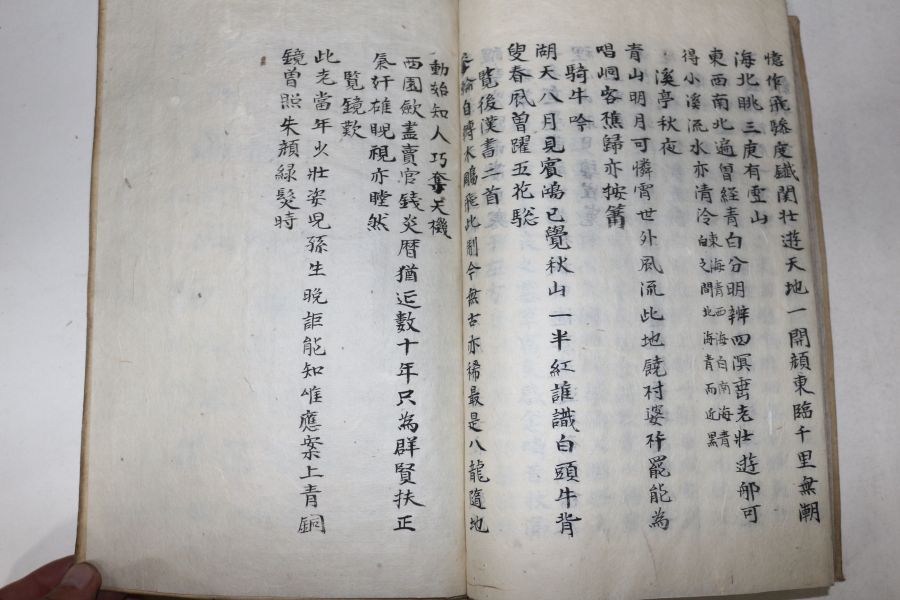 憶作飛騣度鐵関壮遊天地一開顔東臨千里無潮
海北眺三庚有雪山
東西南北遍曾經青白分明辨四溟啬老壮遊郍可
得小溪流水亦清泠東海青西海白南海青白之間北海青而近黑
溪亭秋夜
青山明月可憐宵世外風流此地饒村婆砕罷能為
唱峒客樵歸亦按簫
騎牛吟
湖天八月見賓鴻已覺秋山一半紅誰識白頭牛背
叟春風曾躍五花驄
覧後漢書二首
自轉水飛此制今無古亦稀最是八龍隨地
動始知人巧奪天機
西園斂盡賣官錢炎暦猶近數十年只為群賢扶正
氣奸雄睨視亦瞠然
覧鏡歎
此老當年少壮姿兒孫生晚詎能知惟應案上青銅
鏡曽照朱顔緑髮時